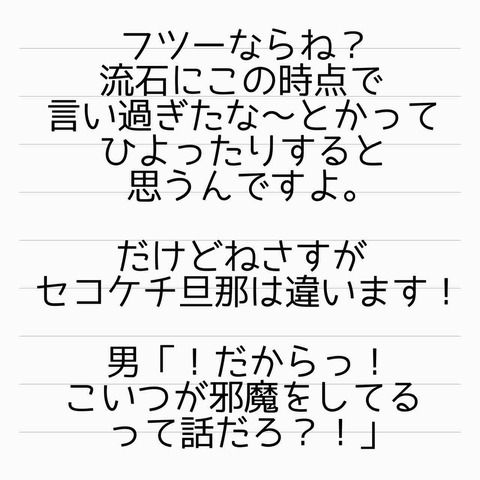 フツーならね？
流石にこの時点で
言い過ぎたな〜とかって
ひよったりすると
思うんですよ。
だけどねさすが
セコケチ旦那は違います！
男「！だからっ！
こいつが邪魔をしてる
って話だろ？！」